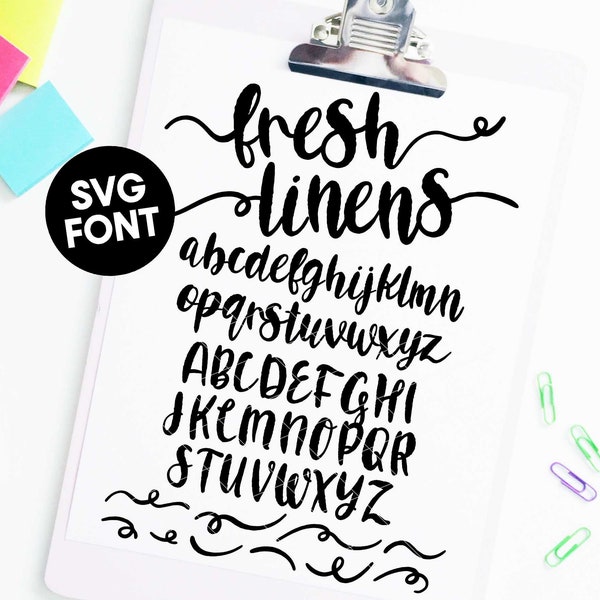 fresh
linens
SVG
FONT
abcdefghijklmn
opqrstuvwxyz
ABCDEFGHI
JKLMNOPQR
STUVWXYZ